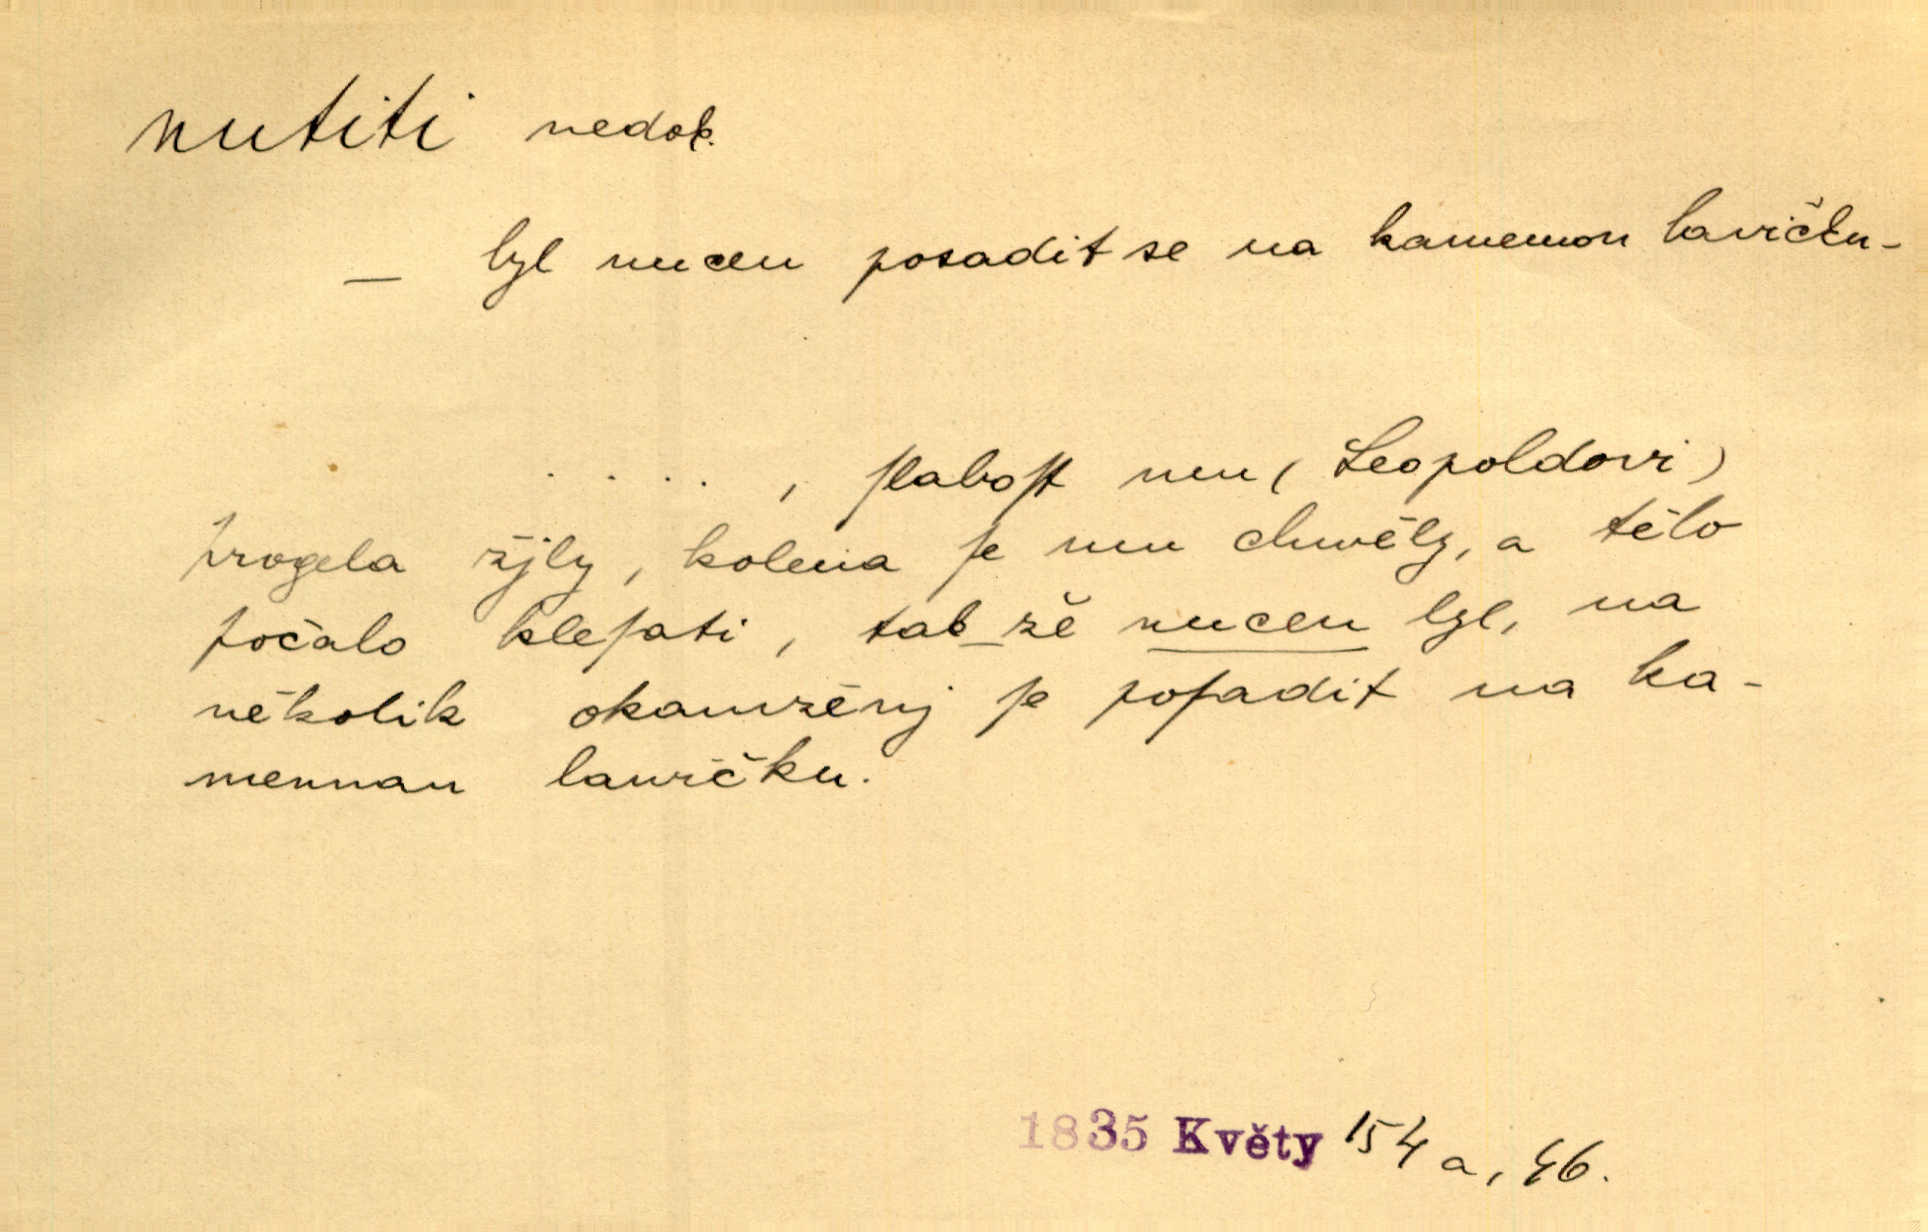 nutiti nedok.
— byl nucen posadit se na kamennou lavičku -
. . . . , ſlaboſt mu (Leopoldovi)
progela žjly, kolena ſe mu chwěly, a tělo
počalo kleſati, tak_že nucen byl, na
několik okamženj ſe poſadit na ka-
mennau lawičku.
1835 Květy 154 a, 46.